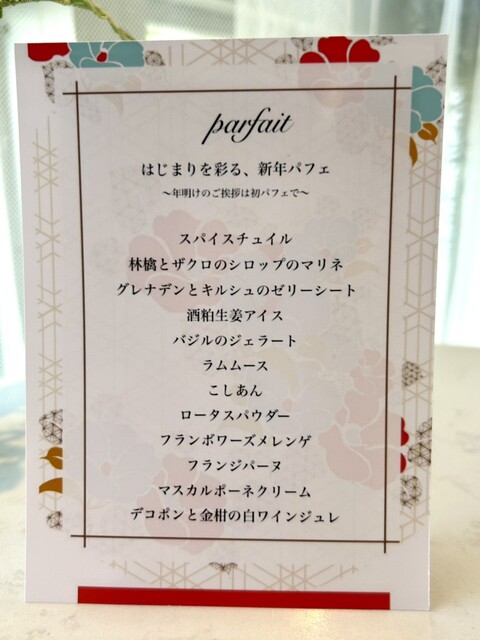 parfait
はじまりを彩る、新年パフェ
～年明けのご挨拶は初パフェで～
スパイスチュイル
林檎とザクロのシロップのマリネ
グレナデンとキルシュのゼリーシート
酒粕生姜アイス
バジルのジェラート
ラムムース
こしあん
ロータスパウダー
フランボワーズメレンゲ
フランジパーヌ
マスカルポーネクリーム
デコポンと金柑の白ワインジュレ